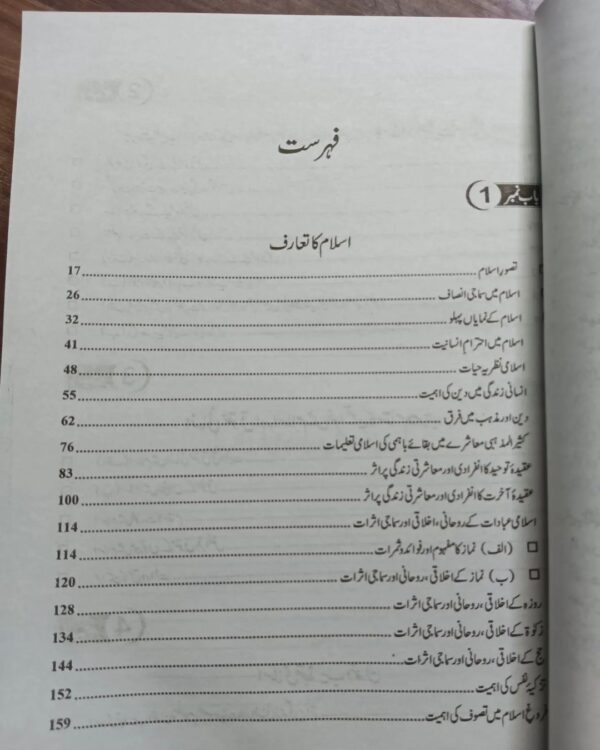 فہرست
باب نمبر 1
اسلام کا تعارف
تصور اسلام 17
اسلام میں سماجی انصاف 26
اسلام کے نمایاں پہلو 32
اسلام میں احترام انسانیت 41
اسلامی نظریہ حیات 48
انسانی زندگی میں دین کی اہمیت 55
دین اور مذہب میں فرق 62
کثیر المذہبی معاشرے میں بقائے باہمی کی اسلامی تعلیمات 76
عقیدۂ توحید کا انفرادی اور معاشرتی زندگی پر اثر 83
عقیدۂ آخرت کا انفرادی اور معاشرتی زندگی پر اثر 100
اسلامی عبادات کے روحانی، اخلاقی اور سماجی اثرات 114
(الف) نماز کا مفہوم اور فوائد و ثمرات 114
(ب) نماز کے اخلاقی، روحانی اور سماجی اثرات 120
روزہ کے اخلاقی، روحانی اور سماجی اثرات 128
زکوٰۃ کے اخلاقی، روحانی اور سماجی اثرات 134
حج کے اخلاقی، روحانی اور سماجی اثرات 144
تزکیۂ نفس کی اہمیت 152
فروغ اسلام میں تصوف کی اہمیت 159